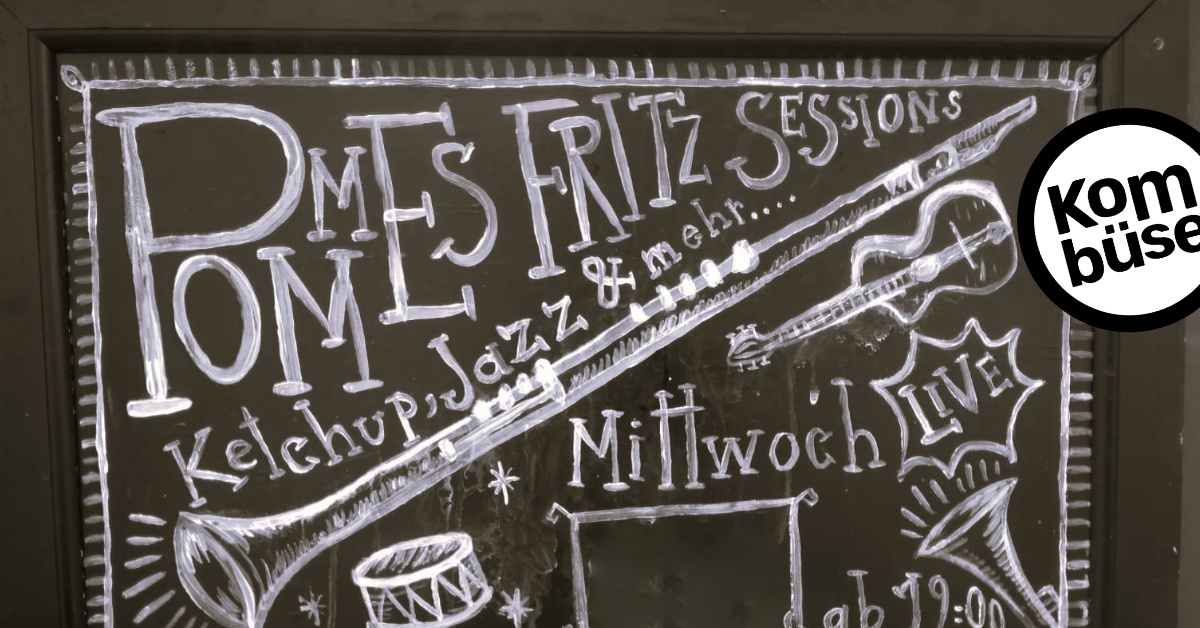 POMMES FRITZ SESSIONS
Ketchup, Jazz & mehr....
Mittwoch
LIVE
ab 19:00
Kom
büse